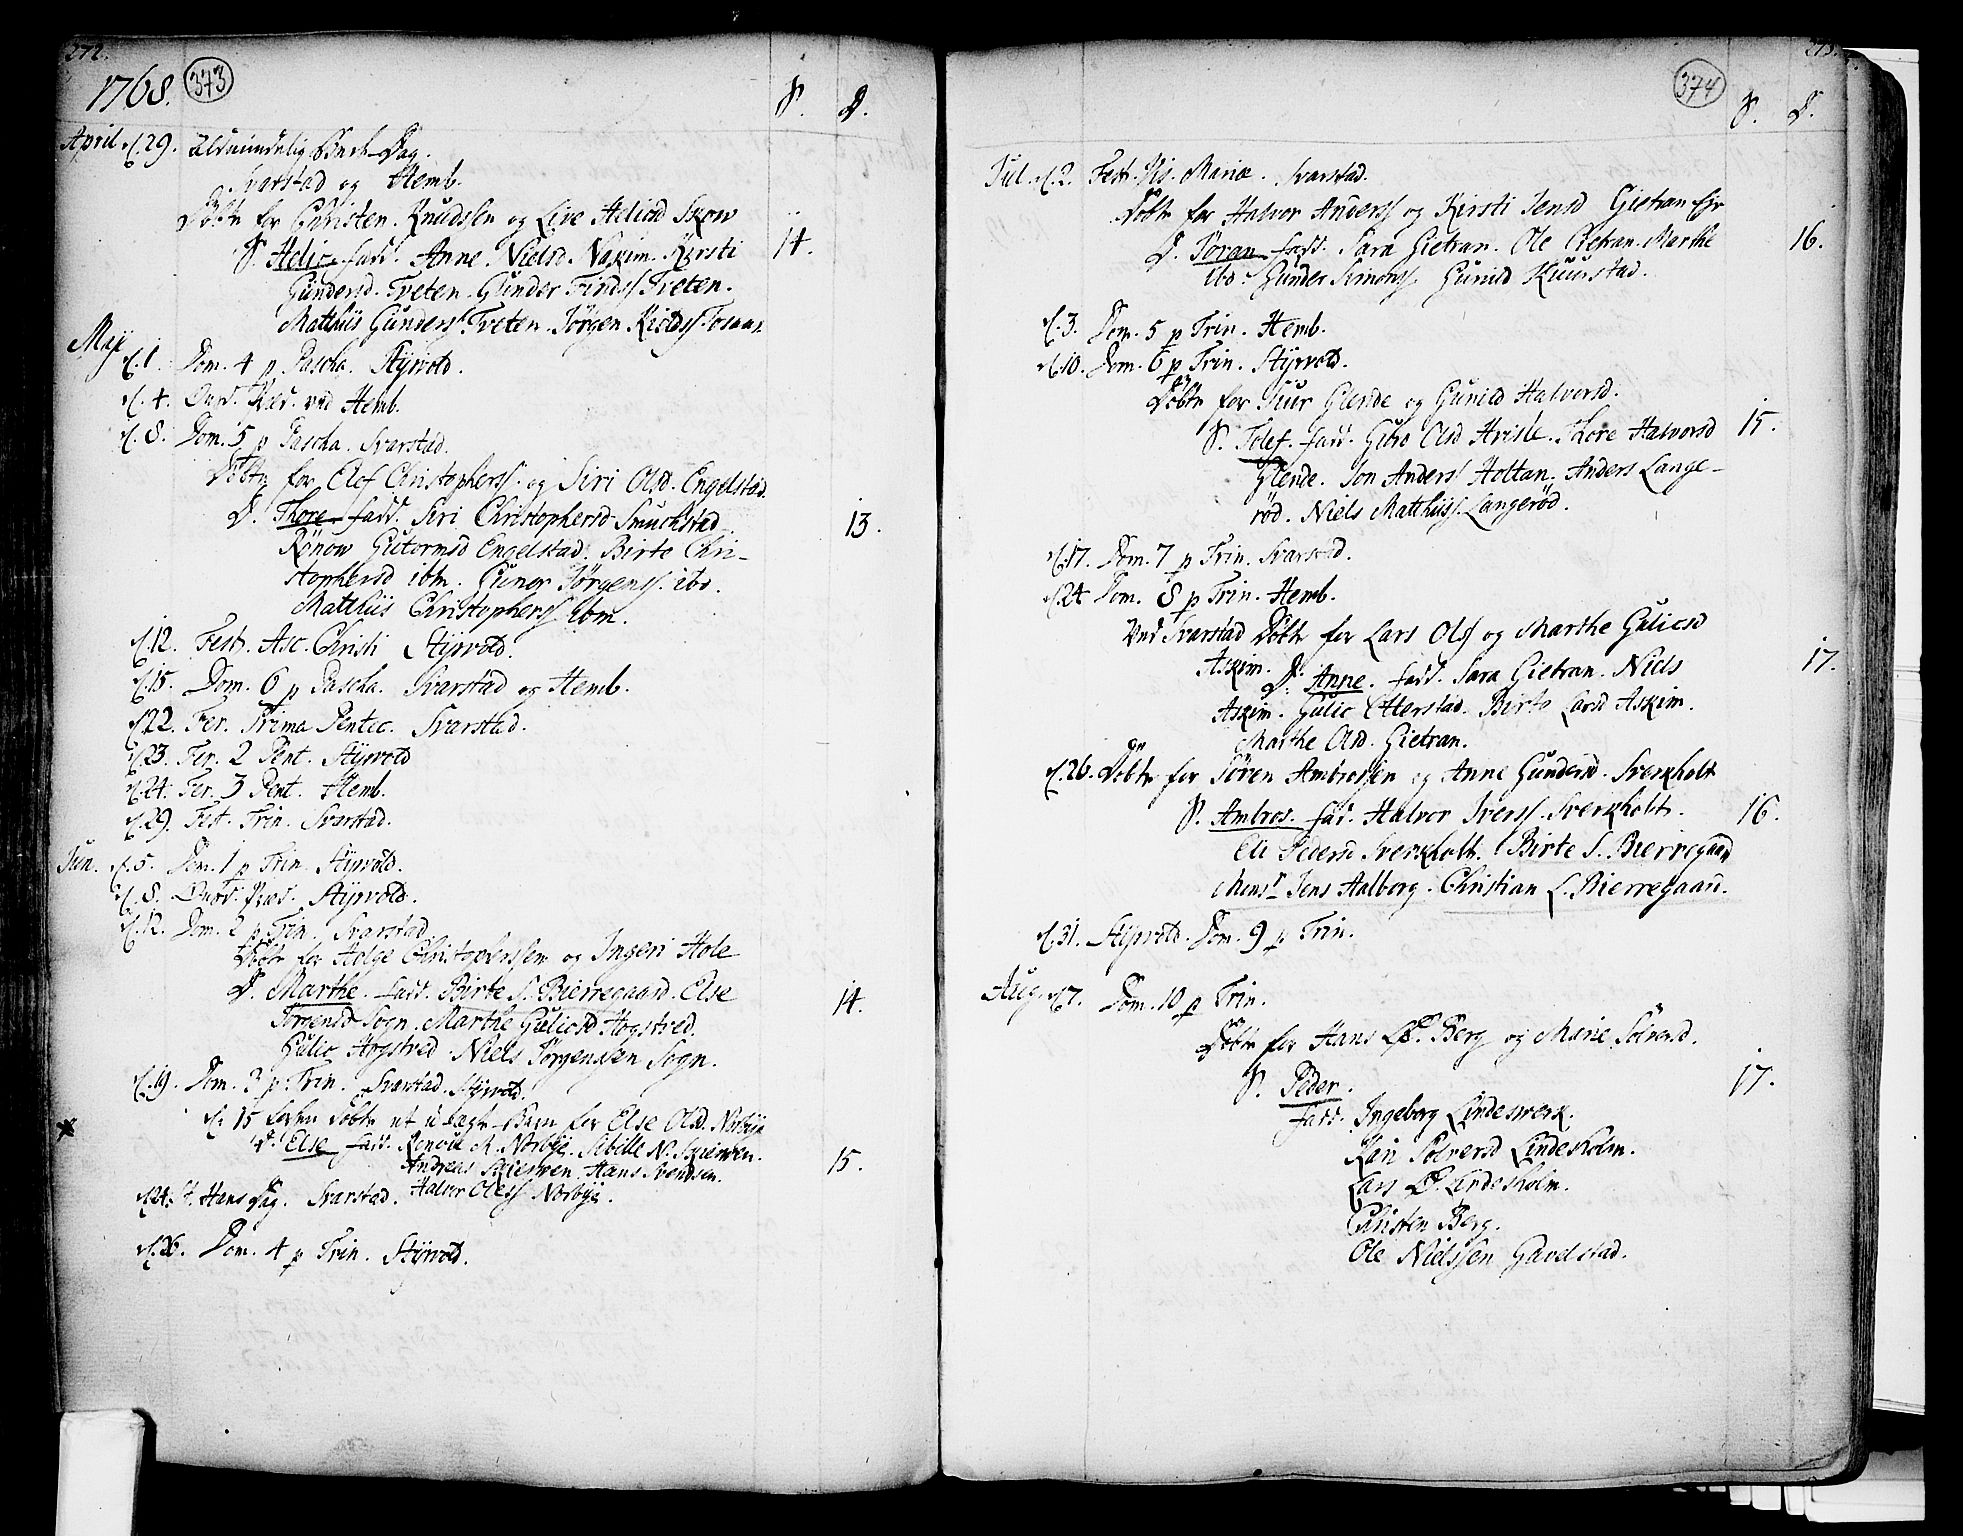 272.
1768. 373
S. D.
April d. 29. Almindelig Bede-Dag.
Svarstad og Hemb.
Døbt for Christen Knudssen og Live Heliesd Skow
S. Helie fadd. Anne Nielsd Naxim. Kirsti 14.
Gundersd. Tveten. Gunder Findss Tveten.
Matthiis Gunderss Tveten. Jørgen
Maji
d. 1. Dom. 4 p Pascha. Styrvold.
d. 4. Onsd. Præd. ved Hemb.
d. 8. Dom. 5 p Pascha. Svarstad.
Døbt for Elef Christopherss. og Siri Olsd. Engelstad.
D. Thore fadd. Siri Christophersd Smuckstad 13.
Rønow Gutormsd Engelstad. Birte Chri-
stophersd ibm. Guner Jørgenss. ibd.
Matthiis Christopherss ibm.
d. 12. Fest. Asc. Christi Styrvold.
d. 15. Dom. 6 p Pascha. Svarstad og Hemb.
d. 22. Fer. Prima Pentec. Svarstad.
d. 23. Fer. 2 Pent. Styrvold
d. 24. Fer. 3 Pent. Hemb.
d. 29. Fest. Trin. Svarstad.
Jun. d. 5. Dom. 1 p Trin Styrvold.
d. 8. Onsd. Præd. Styrvold.
d. 12. Dom. 2 p Trin. Svarstad.
Døbt for Helge Christophersen og Ingeri Hole
D. Marthe. fadd. Birte S. Bierregaard. Else 14.
Jørgensd Sogn. Marthe Guliesd Hogstved.
Gulic Hogstved. Niels Jørgenssen Sogn.
d. 19. Dom. 3 p Trin. Svarstad. Styrvold.
d. 15 døbt et u-ægte Barn for Else Olsd. Norbye
D. Else fadd. Ronoue M. Norbye. Sibille N. Skierven. 15.
Andreas Skierven. Hans Svendsen.
Halvor Oless Norbye.
d. 24. St. Hans Dag. Svarstad.
d. 26. Dom. 4 p Trin. Styrvold.
273.
374
S. D.
Jul. d. 2. Fest. Vis. Mariæ. Svarstad.
Døbt for Halvor Anderss og Kirsti Jensd Gietran Eje
D. Jøran fadd. Sara Gietran. Ole Gietran. Marthe 16.
ibd. Gunder Simonss Gunild Kuurstad.
d. 3. Dom. 5 p Trin. Hemb.
d. 10. Dom. 6 p Trin. Styrvold.
Døbt for Tuur Glende og Gunild Halvorsd.
S. Tolef. fadd. Guro Olsd Hvisle. Thore Halvorsd 15.
Glende. Jon Anderss Holtan. Anders Lange-
rød. Niels Matthiiss. Langerød.
d. 17. Dom. 7 p Trin. Svarstad.
d. 24 Dom. 8 p Trin. Hemb.
Ved Svarstad Døbt for Lars Olss og Marthe Guliesd
Askim. D. Anne. fadd. Sara Gietran. Niels 17.
Askim. Gulic Otterstad. Birte Larsd Askim.
Marthe Olsd. Gietran.
d. 26. Døbt for Søren Ambrossen og Anne Gundersd. Sverkholt
S. Ambros. fad. Halvor Iverss. Sverkholt. 16.
Eli Pedersd Sverkholt. Birte S. Bierregaard
Mons.r Jens Aalborg. Christian L. Bierregaard.
d. 31. Styrvold. Dom. 9 p Trin.
Aug. d. 7. Dom. 10 p Trin.
Døbt for Hans Berg og Marie Solversd.
S. Peder. 17.
fadd. Ingeborg Lindesverk.
Kari Solversd Lindesholm.
Lars Lindesholm.
Christen Berg.
Ole Nielssen Gavelstad.